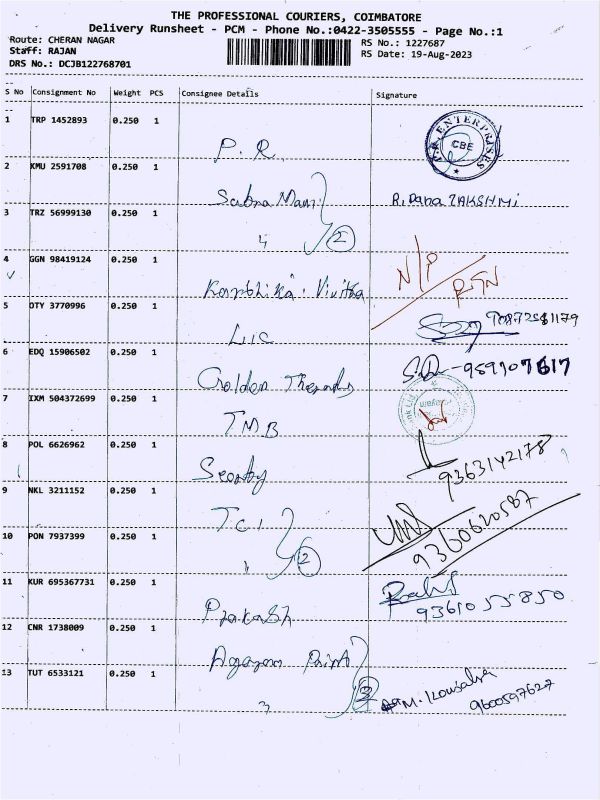 THE PROFESSIONAL COURIERS, COIMBATORE
Delivery Runsheet - PCM - Phone No.:0422-3505555 - Page No.:1
Route: CHERAN NAGAR
Stafff: RAJAN
DRS No.: DCJB122768701
RS No.: 1227687
RS Date: 19-Aug-2023
S No Consignment No Weight PCS Consignee Details Signature
1 TRP 1452893 0.250 1 P.R. P.R. ENTERPRISES CBE
2 KMU 2591708 0.250 1 Sabna Mani R. Dana ZAKSHMi
3 TRZ 56999130 0.250 1 " 2
4 GGN 98419124 0.250 1 Karthika. Vivitha N/P RTN
5 OTY 3770996 0.250 1 LIC
6 EDQ 15906502 0.250 1 Golden Thends
7 IXM 504372699 0.250 1 TMB
8 POL 6626962 0.250 1 9363142178
9 NKL 3211152 0.250 1 T.C.I
10 PON 7937399 0.250 1 " 2 9360620587
11 KUR 695367731 0.250 1 Prakash 9361055850
12 CNR 1738009 0.250 1 Agaram Paint
13 TUT 6533121 0.250 1 " 2 M. Kousalya 9600597627